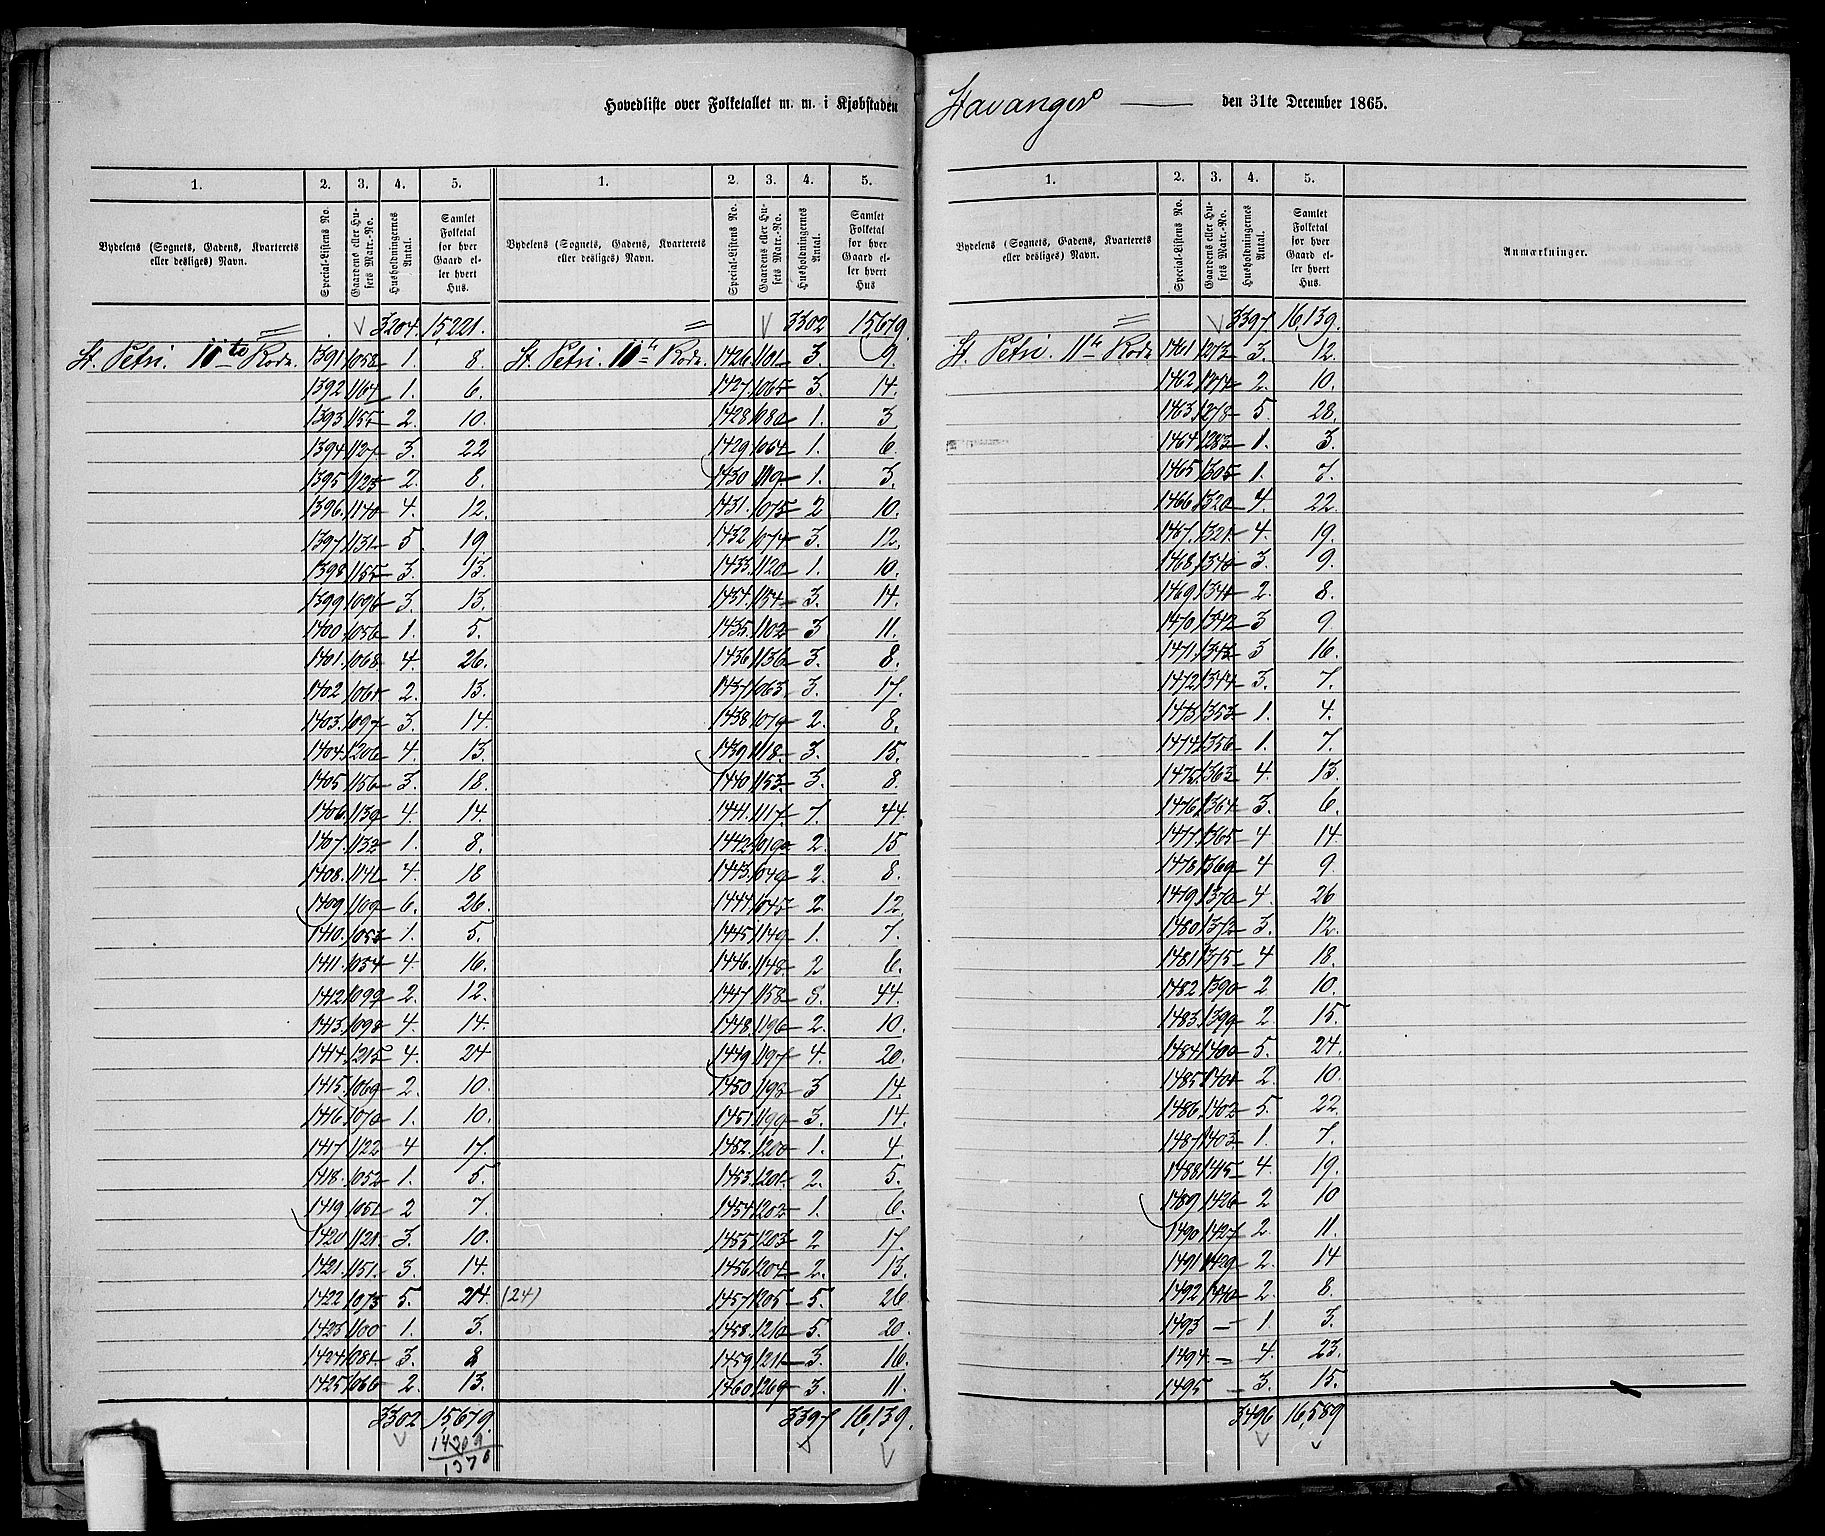 Hovedliste over Folketallet m. m. i Kjøbstaden Stavanger den 31te December 1865.
1. 2. 3. 4. 5. 1. 2. 3. 4. 5.
Bydelens (Sognets, Gadens, Kvarterets eller desliges) Navn. Special-Listens No. Gaardens eller Husets Matr.-No. Husholdningernes Antal. Samlet Folketal for hver Gaard eller hvert Hus.
Bydelens (Sognets, Gadens, Kvarterets eller desliges) Navn. Special-Listens No. Gaardens eller Husets Matr.-No. Husholdningernes Antal. Samlet Folketal for hver Gaard eller hvert Hus
3204. 15,221.
St. Petri. 11te Rode. 1391 1058 1. 8.
1392 1164 1. 6.
1393 1155 2. 10.
1394 1127 3. 22
1395 1123 2. 8.
1396. 1170 4. 12.
1397 1131 5. 19.
1398 1155 3. 13.
1399 1096 3. 13.
1400 1056 1. 5.
1401. 1068 4. 26.
1402 1061 2. 13.
1403. 1097 3. 14.
1404. 1206 4. 13.
1405 1156 3. 18.
1406. 1139 4. 14.
1407. 1132 1. 8.
1408. 1141 4. 18
1409 1109 6. 26.
1410. 1053 1. 5.
1411. 1054 4. 16.
1412 1099 2. 12.
1413. 1098 4. 14.
1414. 1215 4. 24
1415. 1069 2. 10.
1416 1070 1. 10.
1417 1122 4 17.
1418. 1052 1. 5.
1419 1051 2 7.
1420 1121. 3. 10.
1421. 1151. 3. 14.
1422 1075 5. 24. (24)
1423 1100 1. 3.
1424 1081 3. 8
1425 1066 2. 13.
3302 15,679.
14209
1370
3302 15,679.
St. Petri. 11te Rode. 1426 1101 3. 9.
1427 1065 3. 14.
1428 1080 1. 3
1429 1064 1. 6.
1430 1119 1. 3.
1431. 1075 2 10.
1432 1074 3. 12.
1433. 1120 1. 10.
1434. 1154 3. 14.
1435. 1102 3 11.
1436 1136 3. 8.
1437 1063. 3. 17.
1438 1079 2. 8.
1439 1118. 3. 15.
1440 1153. 3. 8
1441. 1117. 7. 44
1442. 1019 2. 15
1443. 1049 2. 8.
1444. 1045 2. 12
1445 1149 1. 7.
1446. 1148. 2 6.
1447 1158 8. 44.
1448. 1196 2. 10.
1449 1197 4. 20.
1450 1198 3 14.
1451 1199 3. 14
1452. 1200 1. 4.
1453. 1201 2. 5.
1454 1202 1. 6.
1455 1203 2 17.
1456. 1204 2. 13.
1457 1205 5. 26
1458. 1210 5. 20.
1459 1211 3. 16.
1460. 1269 3. 11.
3397 16,139.
1. 2. 3. 4. 5.
Bydelens (Sognets, Gadens, Kvarterets eller desliges) Navn. Special-Listens No. Gaardens eller Husets Matr.-No. Husholdningernes Antal. Samlet Folketal for hver Gaard eller hvert Hus. Anmærkninger.
3397 16,139.
St. Petri. 11te Rode 1461 1273 3. 12.
1462 1274 2. 10.
1463. 1278 5. 28.
1464 1283 1. 3.
1465 1305 1. 7.
1466. 1320 4. 22
1467. 1321 4. 19.
1468. 1340 3. 9.
1469 1341 2. 8.
1470 1342 3 9
1471. 1343 3 16.
1472 1344 3. 7.
1473 1353 1. 4.
1474 1356 1. 7.
1475 1363 4. 13.
1476 1364 3. 6.
1477 1365 4 14
1478 1369 4 9
1479 1370 4. 26
1480 1372 3. 12.
1481 1375 4 18.
1482 1390 2 10.
1483 1399 2. 15.
1484 1400 5. 24.
1485 1401 2. 10.
1486. 1402 5. 22.
1487 1403 1. 7.
1488 1415 4. 19.
1489 1426 2 10
1490 1427 2. 11.
1491 1429 2. 14
1492 1440 2. 8.
1493 — 1 3.
1494 — 4. 23.
1495 — 3. 15.
3496 16,589